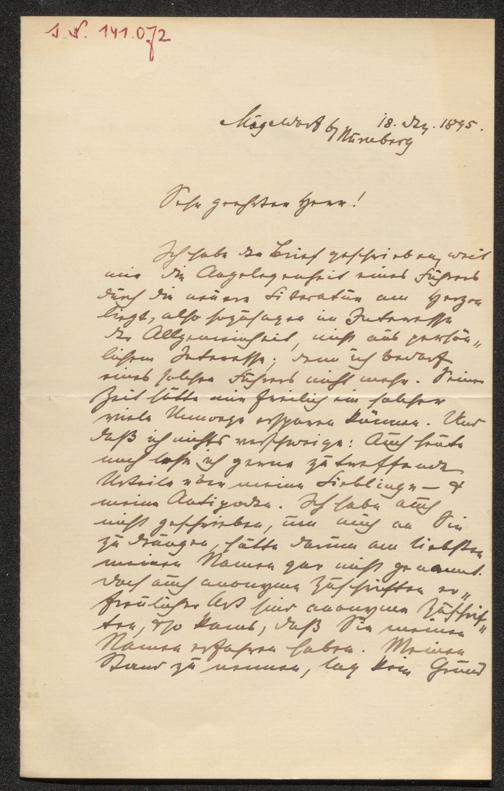 I. N. 141.072
Mögeldorf b/ Nürnberg 18. Dez. 1895.
Sehr geehrter Herr!
Ich habe den Brief geschrieben, weil
mir die Angelegenheit eines Führers
durch die neuere Literatur am Herzen
liegt, also sozusagen im Interesse
der Allgemeinheit, nicht aus persön„
lichem Interesse; denn ich bedarf
eines solchen Führers nicht mehr. Seiner
Zeit hätte mir freilich ein solcher
viele Umwege ersparen können. Und
daß ich nichts verschweige: Auch heute
noch lese ich gerne zutreffende
Urteile über meine Lieblinge – &
meine Antipoden. Ich habe auch
nicht geschrieben, um mich an Sie
zu drängen, hätte darum am liebsten
meinen Namen gar nicht genannt.
Doch auch anonyme Zuschriften er„
freulicher Art sind anonyme Zuschrif„
ten, & so kams, daß Sie meinen
Namen erfahren haben. Meinen
Stand zu nennen, lag kein Grund